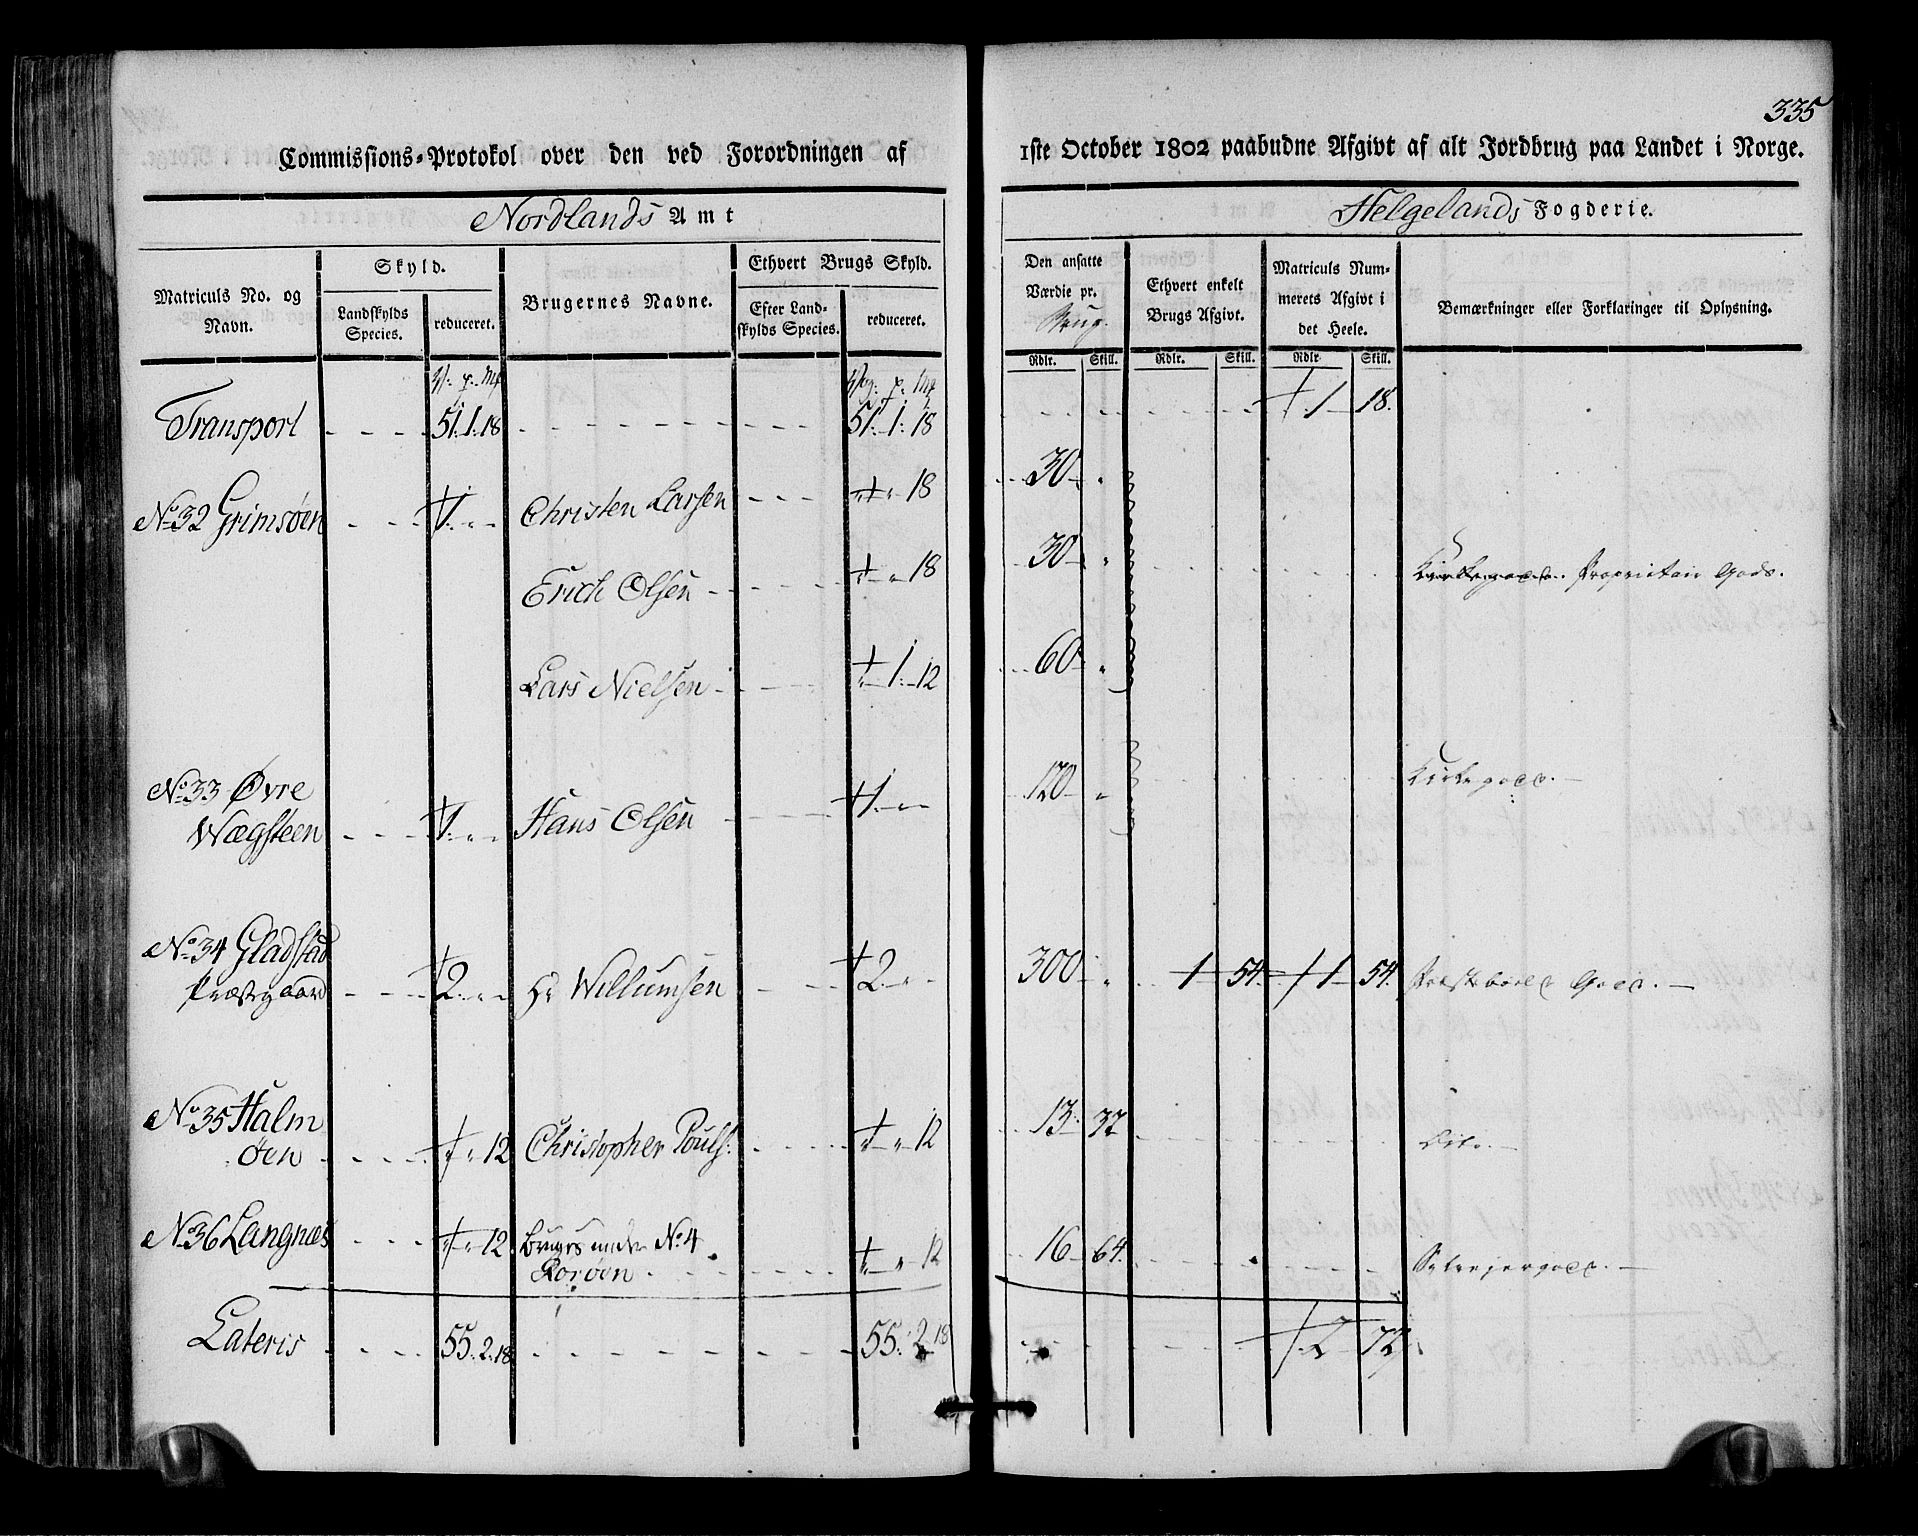 335
Commissions-Protokol over den ved Forordningen af 1ste October 1802 paabudne Afgivt af alt Jordbrug paa Landet i Norge.
Nordlands Amt
Helgelands Fogderie.
Matriculs No. og Navn.
Skyld.
Landskylds Species.
reduceret.
Brugernes Navne.
Ethvert Brugs Skyld.
Efter Landskylds Species.
reduceret.
Den ansatte Værdie pr. Brug.
Ethvert enkelt Brugs Afgivt.
Matriculs Nummerets Afgivt i det Heele.
Bemærkninger eller Forklaringer til Oplysning.
Rdlr. Skill. Rdlr. Skill. Rdlr. Skill.
Transport 51. 1. 18 51. 1. 18 1 18.
No 32 Grimsøen 1. „ „ Christen Larsen „ „ 18 30 „
Erich Olsen „ „ 18 30 „ Kirkegods. Proprietair Gods.
Lars Nielsen „ 1. 12 60 „
No 33 Øvre
Wægsteen 1. „ „ Hans Olsen 1. „ „ 120 „ Kirkegods.
No 34 Gladstad
Præstegaard 2. „ „ Hr Willumsen 2. „ „ 300 „ 1 54. 1 54. Præstebords Gods.
No 35 Halm
øen „ „ 12 Christopher Pouls: „ „ 12 13. 32 Dito.
No 36 Langnæs „ „ 12. Bruges under No 4
„ „ 12 16 64. Selvejergods.
Lateris 55. 2. 18 55. 2. 18 2 72.